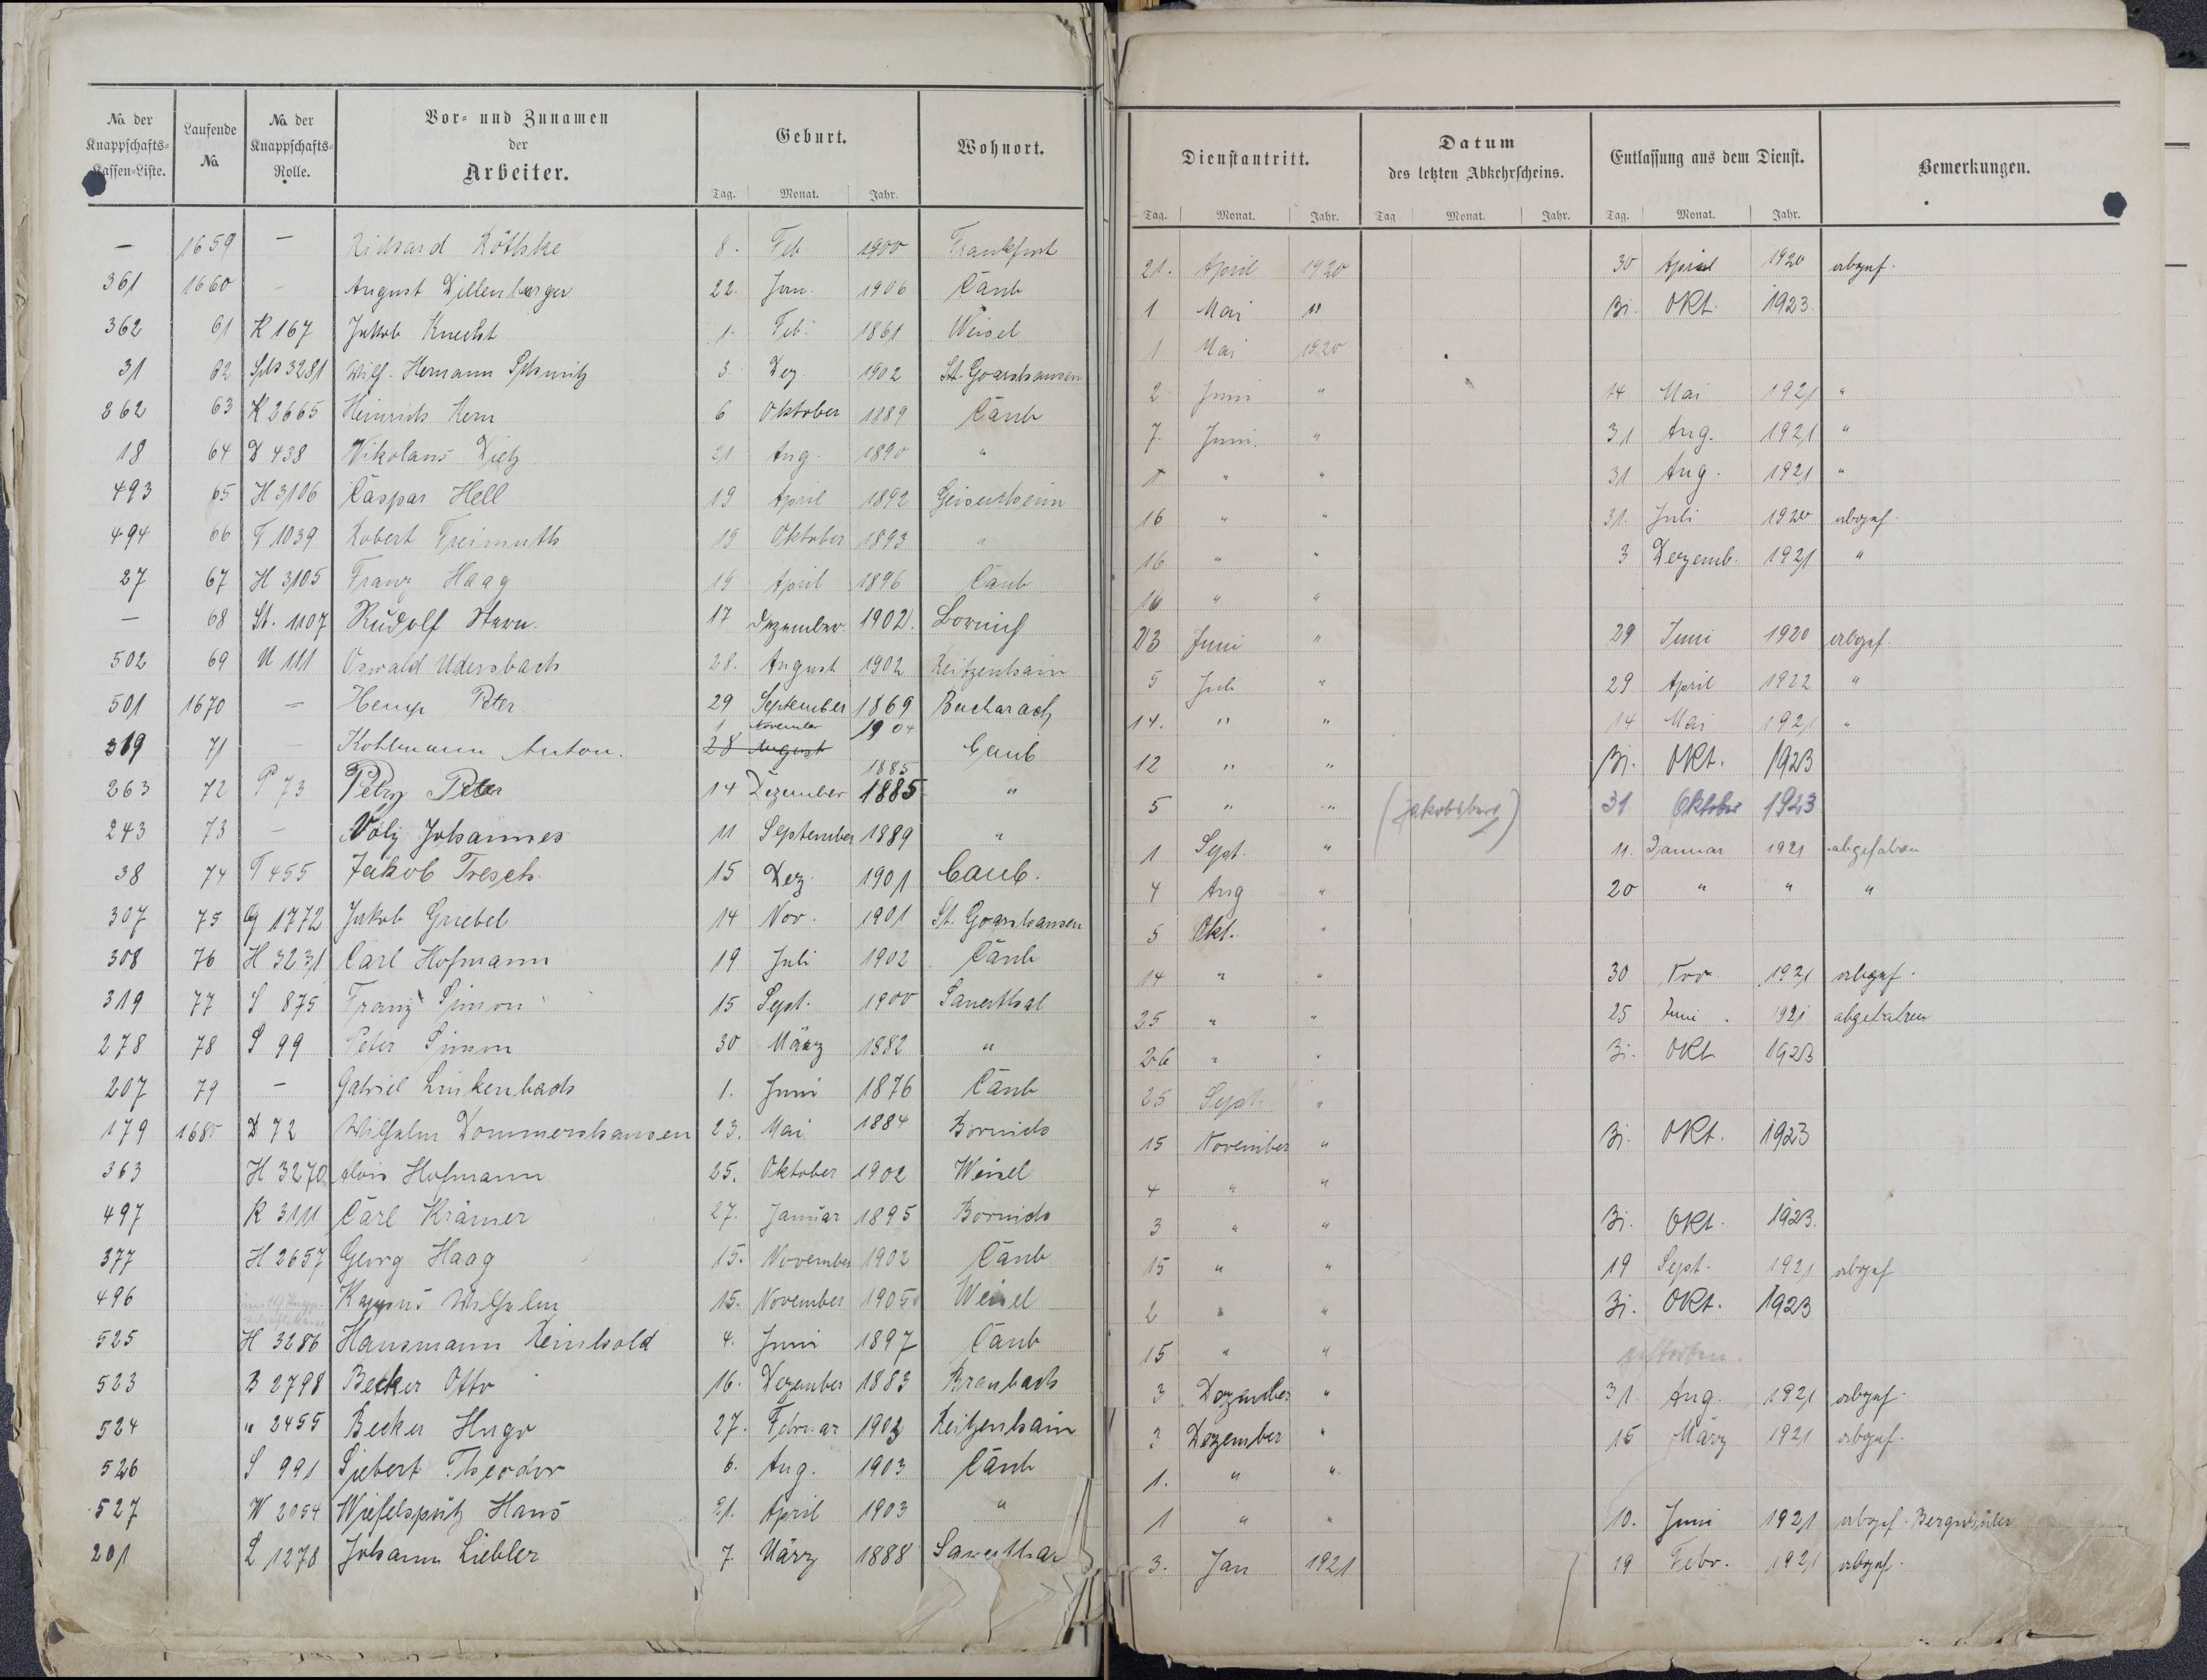 No. der Knappschafts-Kassen-Liste. Laufende No. No. der Knappschafts-Rolle. Vor- und Zunamen der Arbeiter. Geburt. Wohnort. Dienstantritt. Datum des letzten Abkehrscheins. Entlassung aus dem Dienst. Bemerkungen.
Tag. Monat. Jahr. Tag. Monat. Jahr. Tag Monat. Jahr. Tag. Monat. Jahr.
— 1659 — Richard Röthke 8. Feb 1900 Frankfurt 21. April 1920 30 April 1920 abgef.
361 1660 — August Dillenberger 22. Jan. 1906 Caub 1 Mai " 31. Okt. 1923.
362 61 K 167 Jakob Knecht 1. Feb. 1861 Weisel 1 Mai 1920
31 62 Sch 3281 Wilh. Hermann Schmitz 3. Dez. 1902 St. Goarshausen 2 Juni " 14 Mai 1921 "
262 63 K 2665 Heinrich Kern 6 Oktober 1889 Caub 7. Juni. " 31 Aug. 1921 "
18 64 D 438 Nikolaus Dietz 21 Aug. 1890 " " " 31 Aug. 1921 "
493 65 H 3106 Caspar Hell 19 April 1892 Geisenheim 16 " " 31. Juli 1920 abgef.
494 66 F 1039 Robert Freimuth 19 Oktober 1893 " 16 " " 3 Dezemb. 1921 "
27 67 H 3105 Franz Haag 19 April 1896 Caub 16 " "
— 68 St. 1107 Rudolf Stern. 17 Dezember 1902. Bornich 23 Juni " 29 Juni 1920 abgef.
502 69 U 111 Oswald Udersbach 28. August 1902 Reitzenhain 5 Juli " 29 April 1922 "
501 1670 — Hemp Peter 29 September 1869 Bacharach 14. " " 14 Mai 1921 "
1 November 1904
319 71 — Kohlmann Anton. 28 August Caub 12 " " 31. Okt. 1923
1885
263 72 P 73 Petry Peter 14 Dezember 1885 " 5 " " (Jakobsburg) 31 Oktober 1923
243 73 — Volz Johannes 11 September 1889 " 1 Sept. " 11. Januar 1921 abgefahren
38 74 T 455 Jakob Tresch. 15 Dez. 1901 Caub. 4 Aug " 20 " " "
307 75 G 1772 Jakob Griebel 14 Nov. 1901 St. Goarshausen 5 Okt. "
308 76 H 3231 Carl Hofmann 19 Juli 1902 Caub 14 " " 30 Nov. 1921 abgef.
319 77 S 875 Franz Simon 15 Sept. 1900 Sauerthal 25 " " 25 Juni . 1921 abgefahren
278 78 S 99 Peter Simon 30 März 1882 " 26 " " 31. Okt 1923
207 79 — Gabriel Linkenbach 1. Juni 1876 Caub 25 Sept. "
179 1680 D 72 Wilhelm Dommershausen 23. Mai 1884 Bornich 15 November " 31. Okt. 1923
363 H 3270 Alois Hofmann 25. Oktober 1902 Weisel 4 " "
497 K 3111 Carl Krämer 27. Januar 1895 Bornich 3 " " 31. Okt. 1923.
377 H 2657 Georg Haag 15. November 1902 Caub 15 " " 19 Sept. 1921 abgef
496 Kappus Wilhelm 15. November 1905 Weisel 2 " " 31. Okt. 1923
525 H 3286 Hausmann Reinhold 4. Juni 1897 Caub 15 " "
523 B 2798 Becker Otto 16. Dezember 1883 Braubach 3 Dezember " 31. Aug. 1921 abgef.
524 " 2455 Becker Hugo 27. Februar 1903 Reitzenhain 3 Dezember " 15 März 1921 abgef.
526 S 991 Siebert Theodor 6. Aug. 1903 Caub 1. " "
527 W 2054 Wiefelspütz Hans 21. April 1903 " 1 " " 10. Juni 1921 abgef. Bergschüler
201 L 1278 Johann Liebler 7. März 1888 Sauerthal 3. Jan 1921 19 Febr. 1921 abgef.